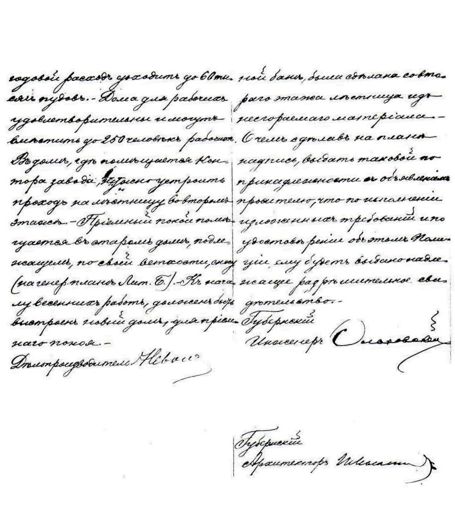 годовой расходъ уходитъ до 60 ты-
сячъ пудовъ. – Дома для рабочихъ
удовлетворительны и могутъ
вмѣстить до 250 человѣкъ рабочихъ
Въ домѣ, гдѣ помѣщается Кон-
тора завода, нужно устроить
проходъ на лѣстницу во второмъ
этажѣ. – Пріемный покой помѣ-
щается въ старомъ домѣ, подле-
жащемъ, по своей ветхости,
(на генер. планѣ Лит. Б.) – Къ нача-
лу весеннихъ работъ, долженъ быть
выстроенъ новый домъ, для пріем-
наго покоя. –
Дѣлопроизводитель
ной банѣ, была сдѣлана со вто-
раго этажа лѣстница изъ
несгораемаго матеріала. –
О чемъ сдѣлавъ на планѣ
надпись, выдать таковой по
принадлежности съ объявленіемъ
просителю, что по исполненіи
изложенныхъ требованій и по
удостовѣреніи объ этомъ Поли-
ціи, ему будетъ выдано надле-
жащее разрѣшительное сви-
дѣтельство. –
Губернскій
Инженеръ
Губернскій
Архитекторъ